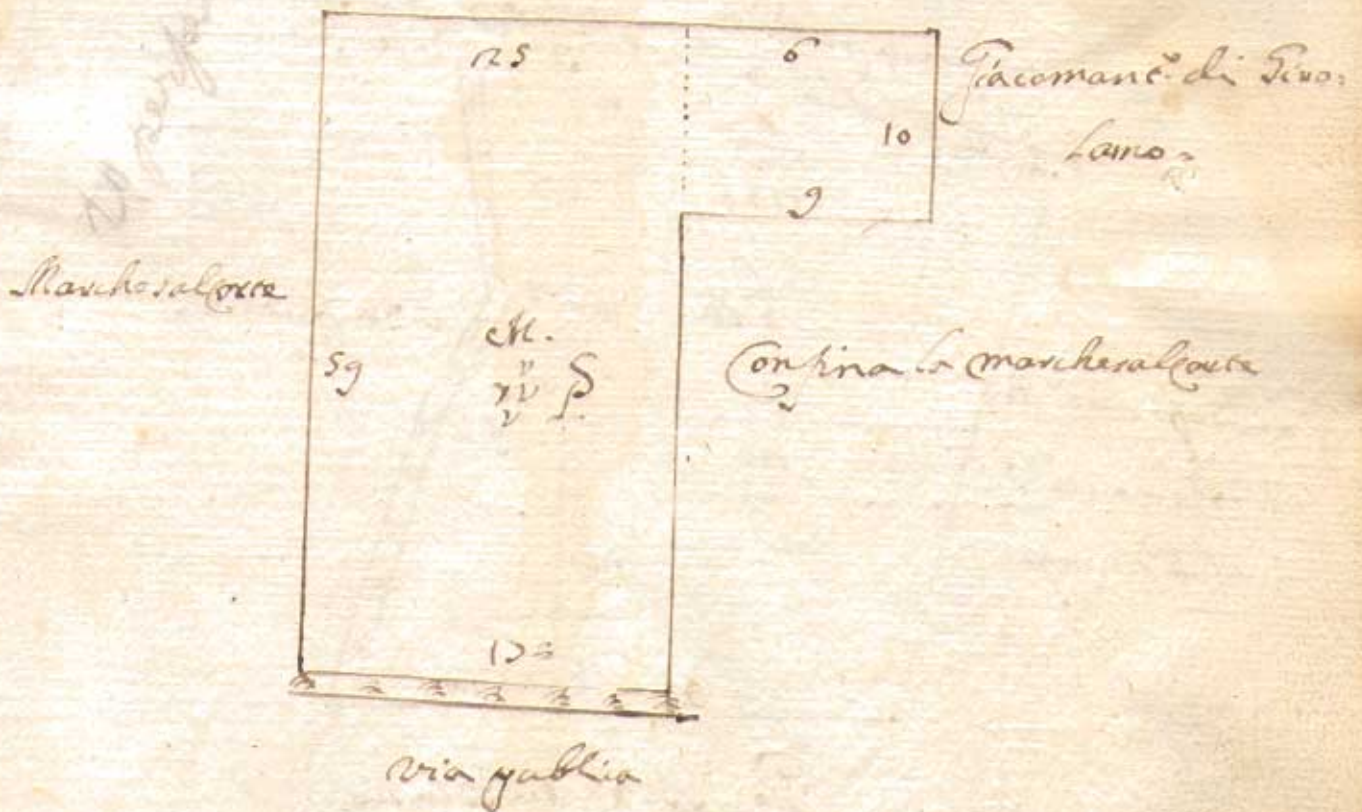 6
Giacomant.^e di Giro=
10
Lamo=
9
Marchesal Corte
M.
59
Confina la marchesal Corte
via publica